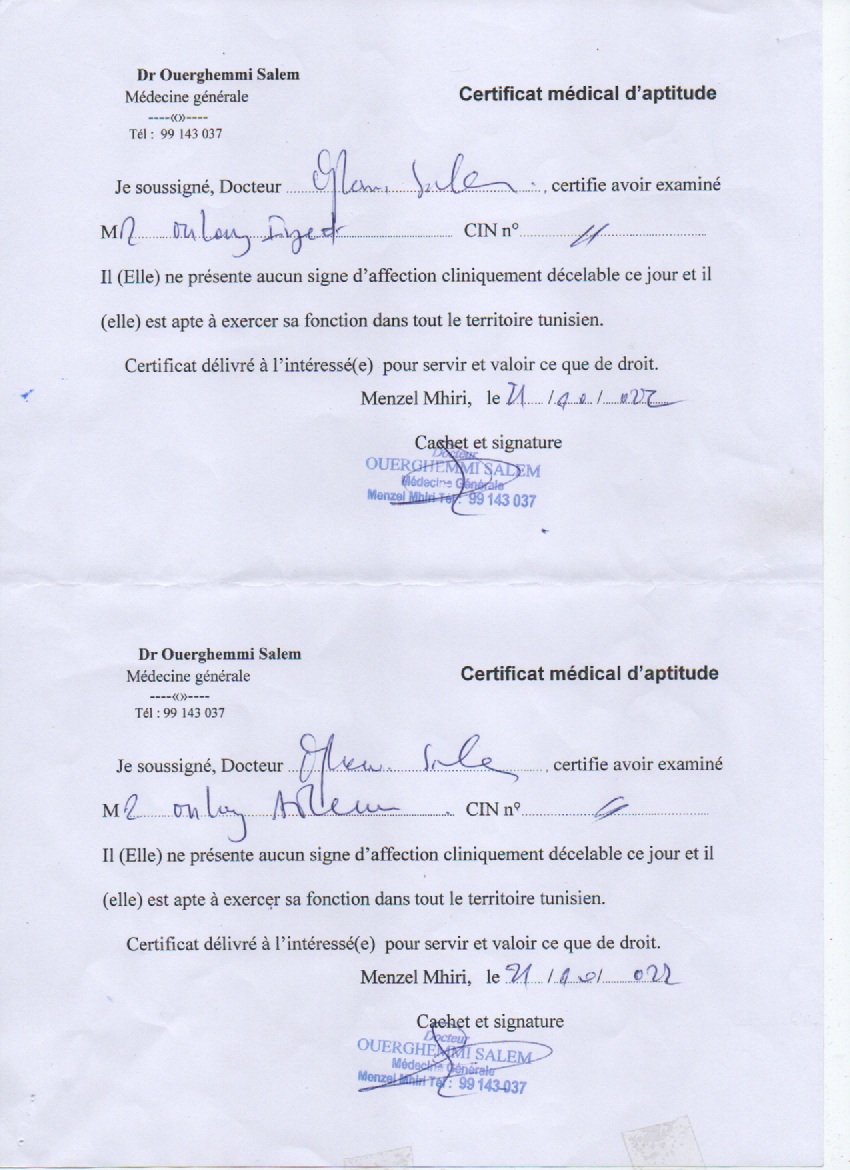 Dr Ouerghemmi Salem
Médecine générale
Certificat médical d'aptitude
----«»----
Tél : 99 143 037
Je soussigné, Docteur Salem, certifie avoir examiné
M CIN n° //
Il (Elle) ne présente aucun signe d'affection cliniquement décelable ce jour et il
(elle) est apte à exercer sa fonction dans tout le territoire tunisien.
Certificat délivré à l'intéressé(e) pour servir et valoir ce que de droit.
Menzel Mhiri, le 21/10/022
Cachet et signature
Docteur
OUERGHEMMI SALEM
Médecine Générale
Menzel Mhiri Tél : 99 143 037
Dr Ouerghemmi Salem
Médecine générale
Certificat médical d'aptitude
----«»----
Tél : 99 143 037
Je soussigné, Docteur Salem, certifie avoir examiné
M CIN n° //
Il (Elle) ne présente aucun signe d'affection cliniquement décelable ce jour et il
(elle) est apte à exercer sa fonction dans tout le territoire tunisien.
Certificat délivré à l'intéressé(e) pour servir et valoir ce que de droit.
Menzel Mhiri, le 21/10/022
Cachet et signature
Docteur
OUERGHEMMI SALEM
Médecine Générale
Menzel Mhiri Tél : 99 143 037